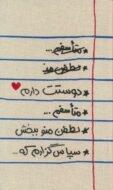 * متأسفم...
* لطفن منو
* دوستت دارم
* متأسفم...
* لطفن منو ببخش
* سپاس گزارم که...